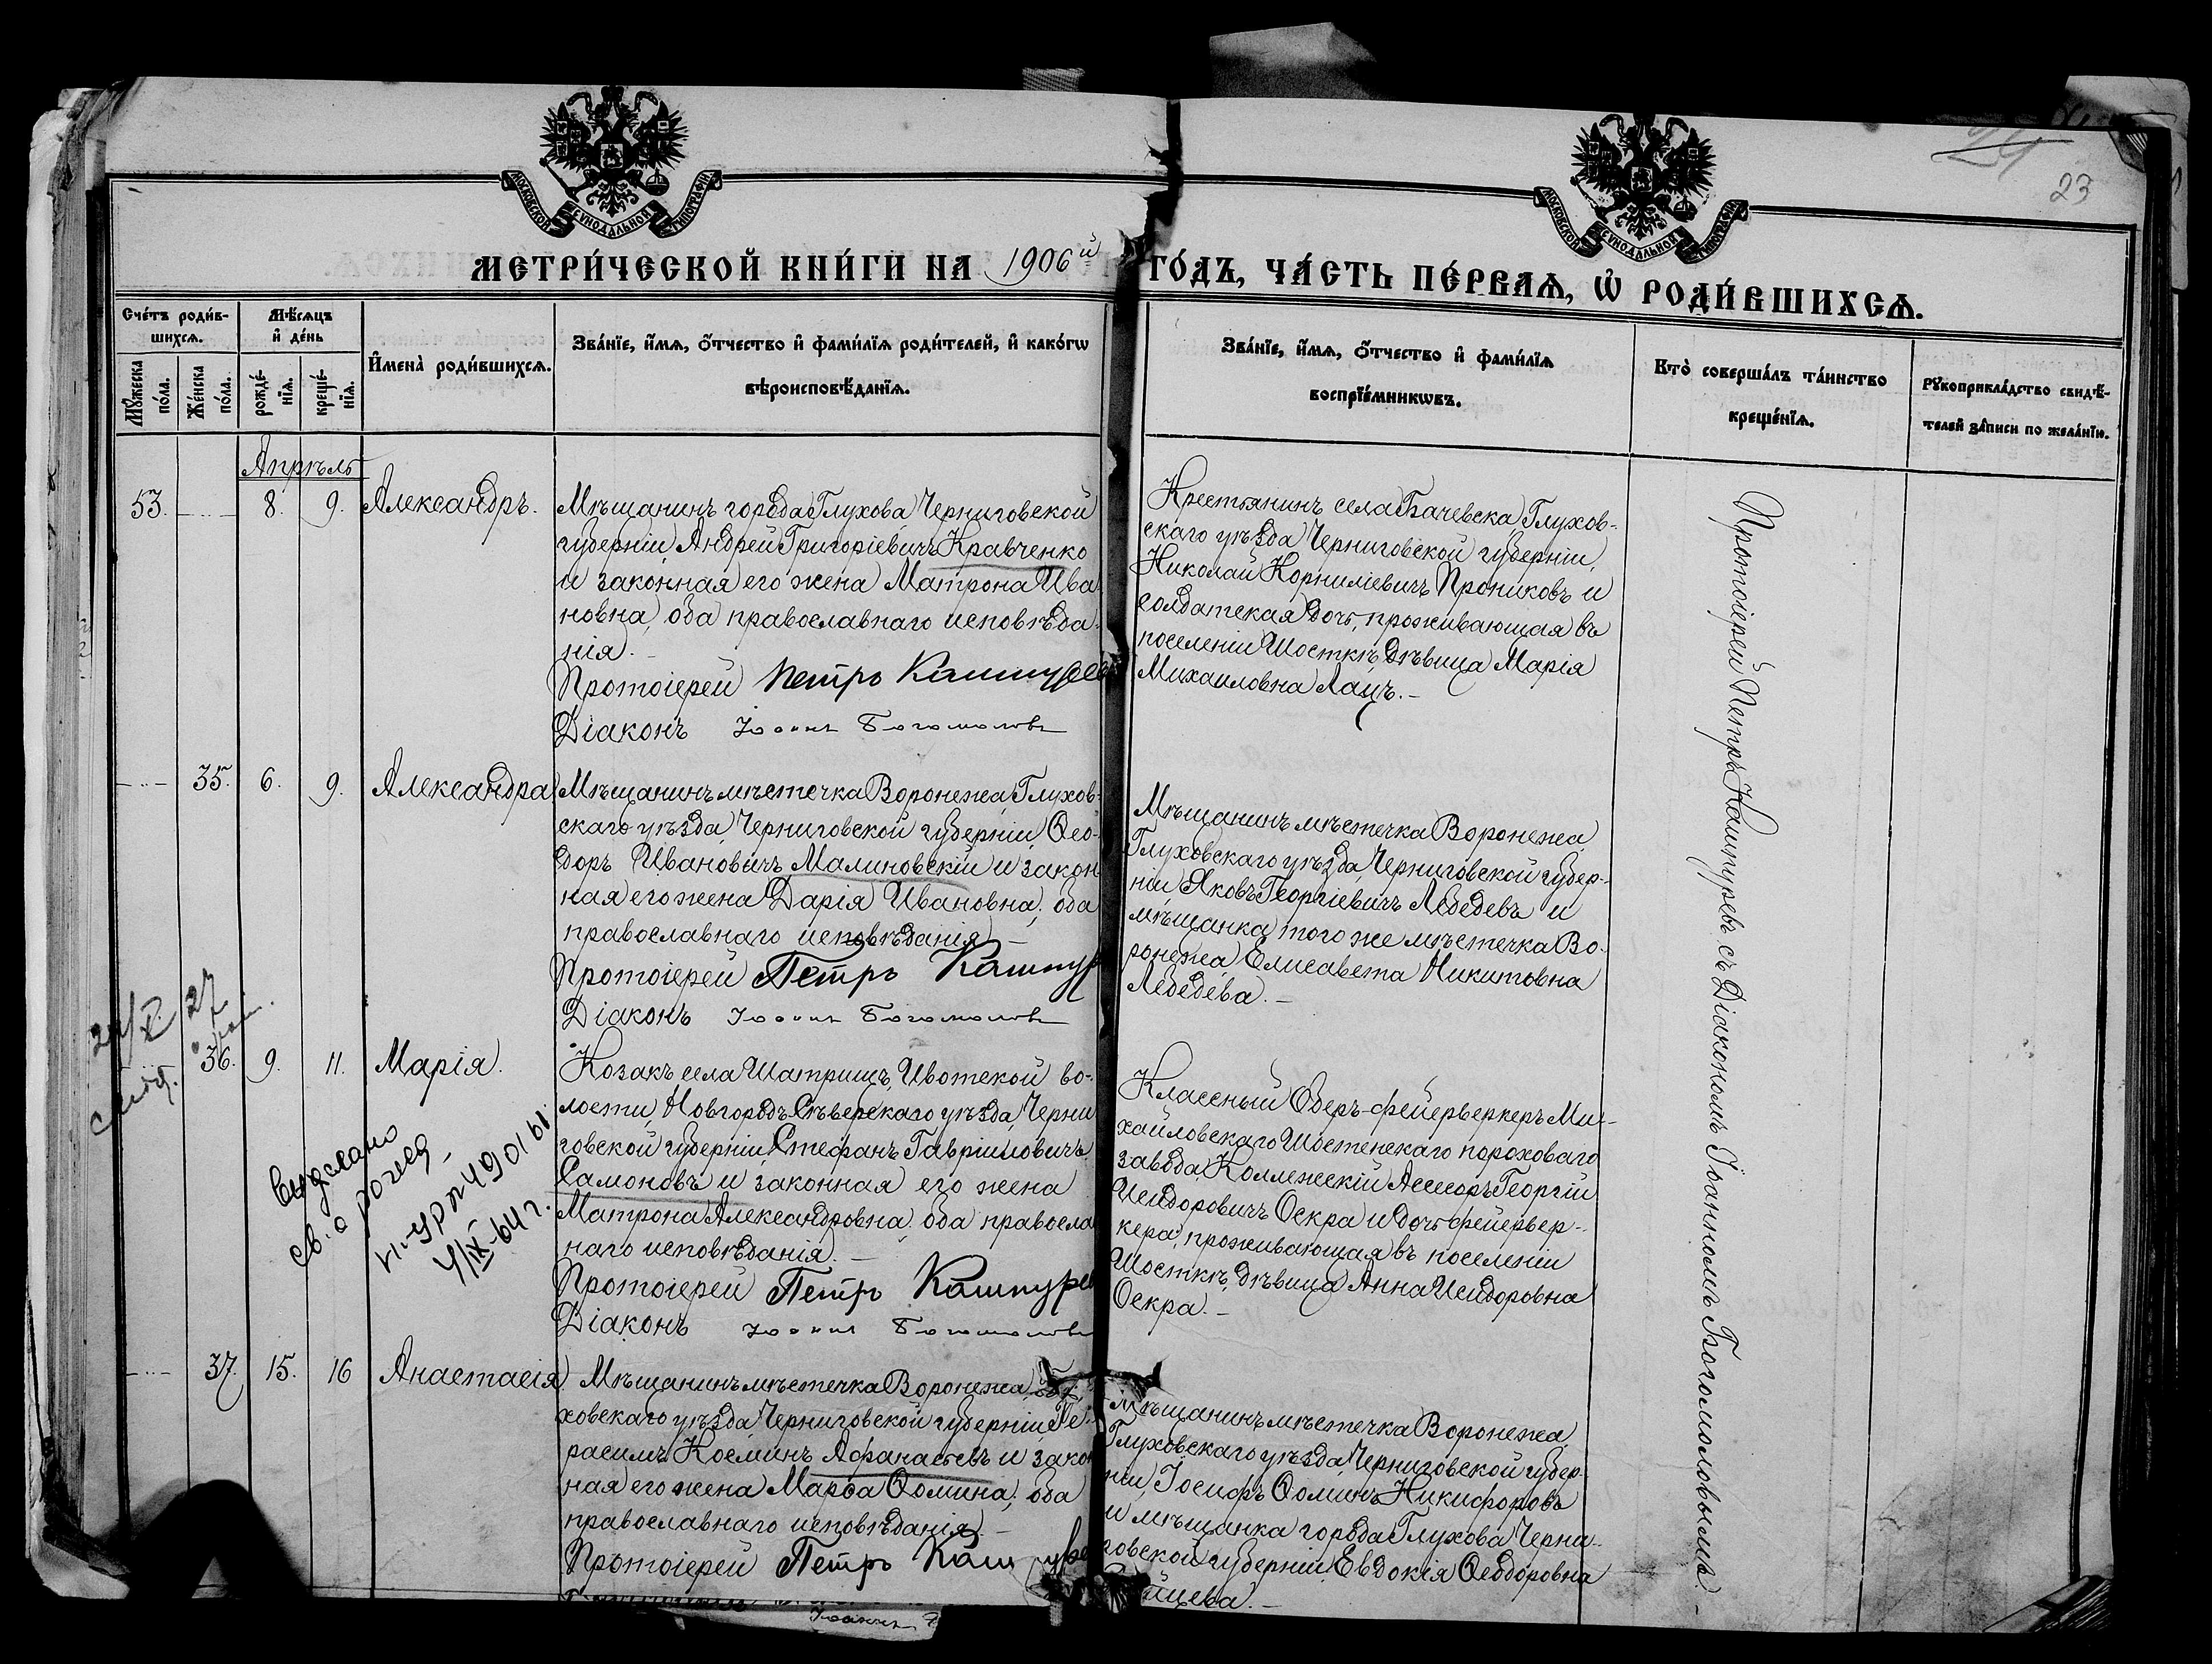 МОСКОВСКОЙ СѴНОДАЛЬНОЙ ТИПОГРАФІИ
МОСКОВСКОЙ СѴНОДАЛЬНОЙ ТИПОГРАФІИ
24
23
МЕТРИ́ЧЕСКОЙ КНИ́ГИ НА 1906й ГО́ДЪ, ЧА́СТЬ ПЕ́РВАѦ, Ѡ҆ РОДИ́ВШИХСѦ.
Сче́тъ роди́в-
шихсѧ.
Мꙋ́жеска по́ла.
Же́нска по́ла.
Мѣ́сѧцъ
и҆ де́нь
рожде́-нїѧ.
креще́-нїѧ.
И҆мена̀ роди́вшихсѧ.
Зва́нїе, и҆́мѧ, ѻ҆́тчество и҆ фами́лїѧ роди́телей, и҆ како́гѡ
вѣроисповѣ́данїѧ.
Зва́нїе, и҆́мѧ, ѻ҆́тчество и҆ фами́лїѧ
воспрїе́мникѡвъ.
Кто̀ соверша́лъ та́инство
креще́нїѧ.
Рꙋкоприкла́дство свидѣ́-
телей за́писи по жела́нїю.
Апрѣль
53. 8. 9. Александръ.
Мѣщанинъ города Глухова Черниговской
губерніи Андрей Григоріевичъ Кравченко
и законная его жена Матрона Ива
новна, оба православнаго исповѣда-
нія.
Протоіерей Петръ Кашпурев
Діаконъ Іоаннъ Богомоловъ
Крестьянинъ села Бачевска, Глухов-
скаго уѣзда Черниговской губерніи,
Николай Корниліевичъ Прониковъ и
солдатская дочь, проживающая въ
поселеніи Шосткѣ, дѣвица Марія
Михаиловна Лацъ.
35. 6. 9. Александра
Мѣщанинъ мѣстечка Воронежа, Глухов-
скаго уѣзда, Черниговской губерніи, Ѳео-
доръ Ивановичъ Малиновскій и закон
ная его жена Дарія Ивановна, оба
православнаго исповѣданія
Протоіерей Петръ Кашпур
Діаконъ Іоаннъ Богомоловъ
Мѣщанинъ мѣстечка Воронежа,
Глуховскаго уѣзда, Черниговской губер-
ніи Яковъ Георгіевичъ Лебедевъ и
мѣщанка того же мѣстечка Во-
ронежа, Елисавета Никитовна
Лебедева.
36. 9. 11. Марія.
Козакъ села Шатрищъ, Ивотской во-
лости, Новгородъ-Сѣверскаго уѣзда, Черни
говской губерніи, Стефанъ Гавріиловичъ
Самоновъ и законная его жена
Матрона Александровна, оба правосла
наго исповѣданія.
Протоіерей Петръ Кашпурев
Діаконъ Іоаннъ Богомоловъ
Классный Оберъ-фейерверкеръ Ми-
хайловскаго Шостенскаго пороховаго
завода, Коллежскій Ассесоръ Георгій
Исидоровичъ Оскра и дочь фейервер-
кера, проживающая въ поселеніи
Шосткѣ, дѣвица Анна Исидоровна
Оскра.
27
Выслано
св. о рожд
4/IX-64 г.
37. 15. 16 Анастасія
Мѣщанинъ мѣстечка Воронежа,
ховскаго уѣзда, Черниговской губерніи Ге-
расимъ Косминъ Аѳанасьевъ и закон
ная его жена Марѳа Ѳомина, оба
православнаго исповѣданія.
Протоіерей Петръ Каш
Іоаннъ
Мѣщанинъ мѣстечка Воронежа,
Глуховскаго уѣзда, Черниговской губер-
ніи, Іосифъ Ѳоминъ Никифоровъ
и мѣщанка города Глухова Черни-
говской губерніи Евдокія Ѳеодоровна
Протоіерей Петръ Кашпуревъ съ Діакономъ Іоанномъ Богомоловымъ.